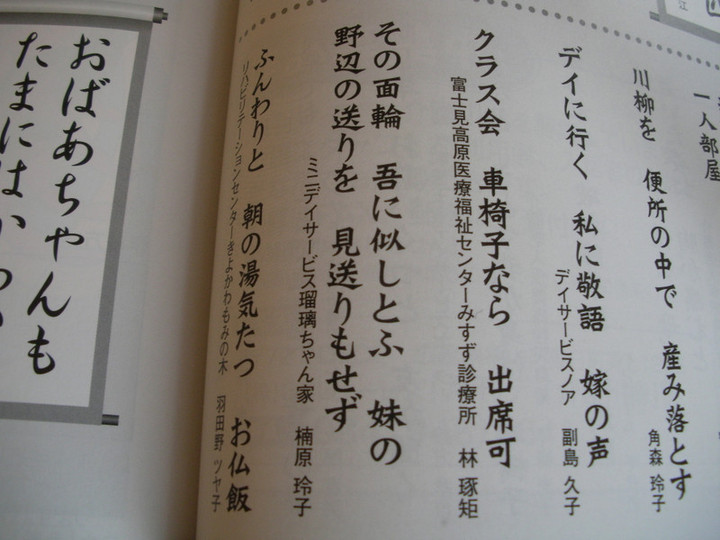 江
一人部屋
川柳を 便所の中で 産み落とす
角森 玲子
デイに行く 私に敬語 嫁の声
デイサービスノア 副島 久子
クラス会 車椅子なら 出席可
富士見高原医療福祉センターみすず診療所 林 琢矩
その面輪 吾に似しとふ 妹の
野辺の送りを 見送りもせず
ミニデイサービス瑠璃ちゃん家 楠原 玲子
ふんわりと 朝の湯気たつ お仏飯
リハビリテーションセンターきよかわもみの木 羽田野 ツヤ子
おばあちゃんも
たまには